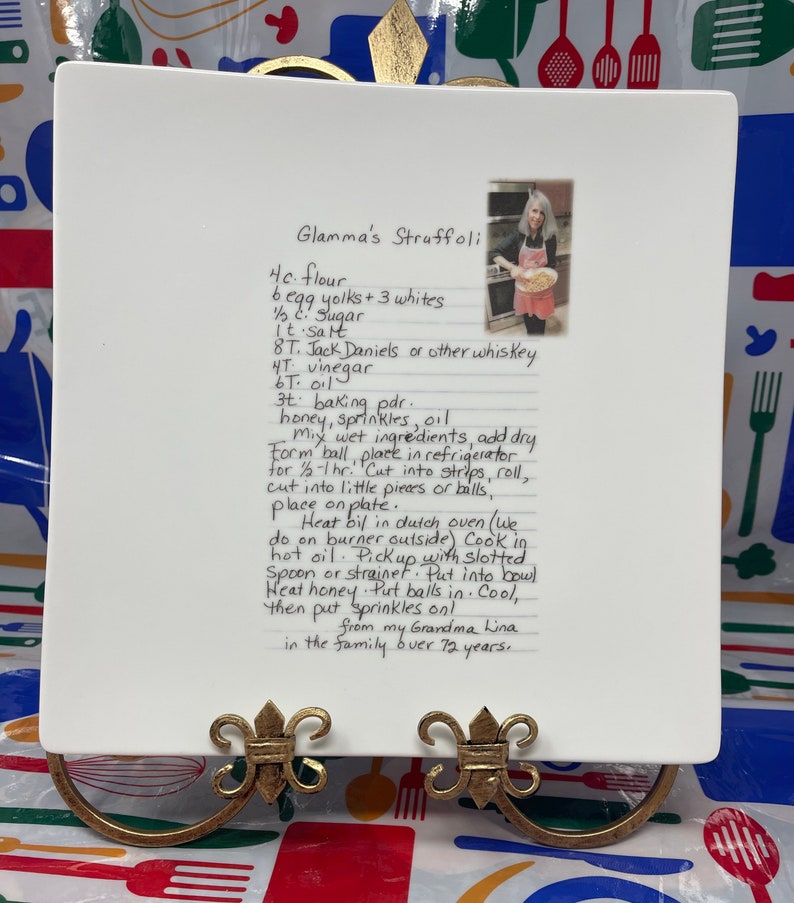 Glamma's Struffoli
4c. flour
6 egg yolks + 3 whites
1/2 c. sugar
1 t. salt
8T. Jack Daniels or other whiskey
4T. vinegar
6T. oil
3t. baking pdr.
honey, sprinkles, oil
Mix wet ingredients, add dry
Form ball, place in refrigerator
for 1/2-1 hr. Cut into strips, roll,
cut into little pieces or balls,
place on plate.
Heat oil in dutch oven (we
do on burner outside) Cook in
hot oil. Pick up with slotted
spoon or strainer. Put into bowl
Heat honey. Put balls in. Cool,
then put sprinkles on!
from my Grandma Lina
in the family over 72 years.